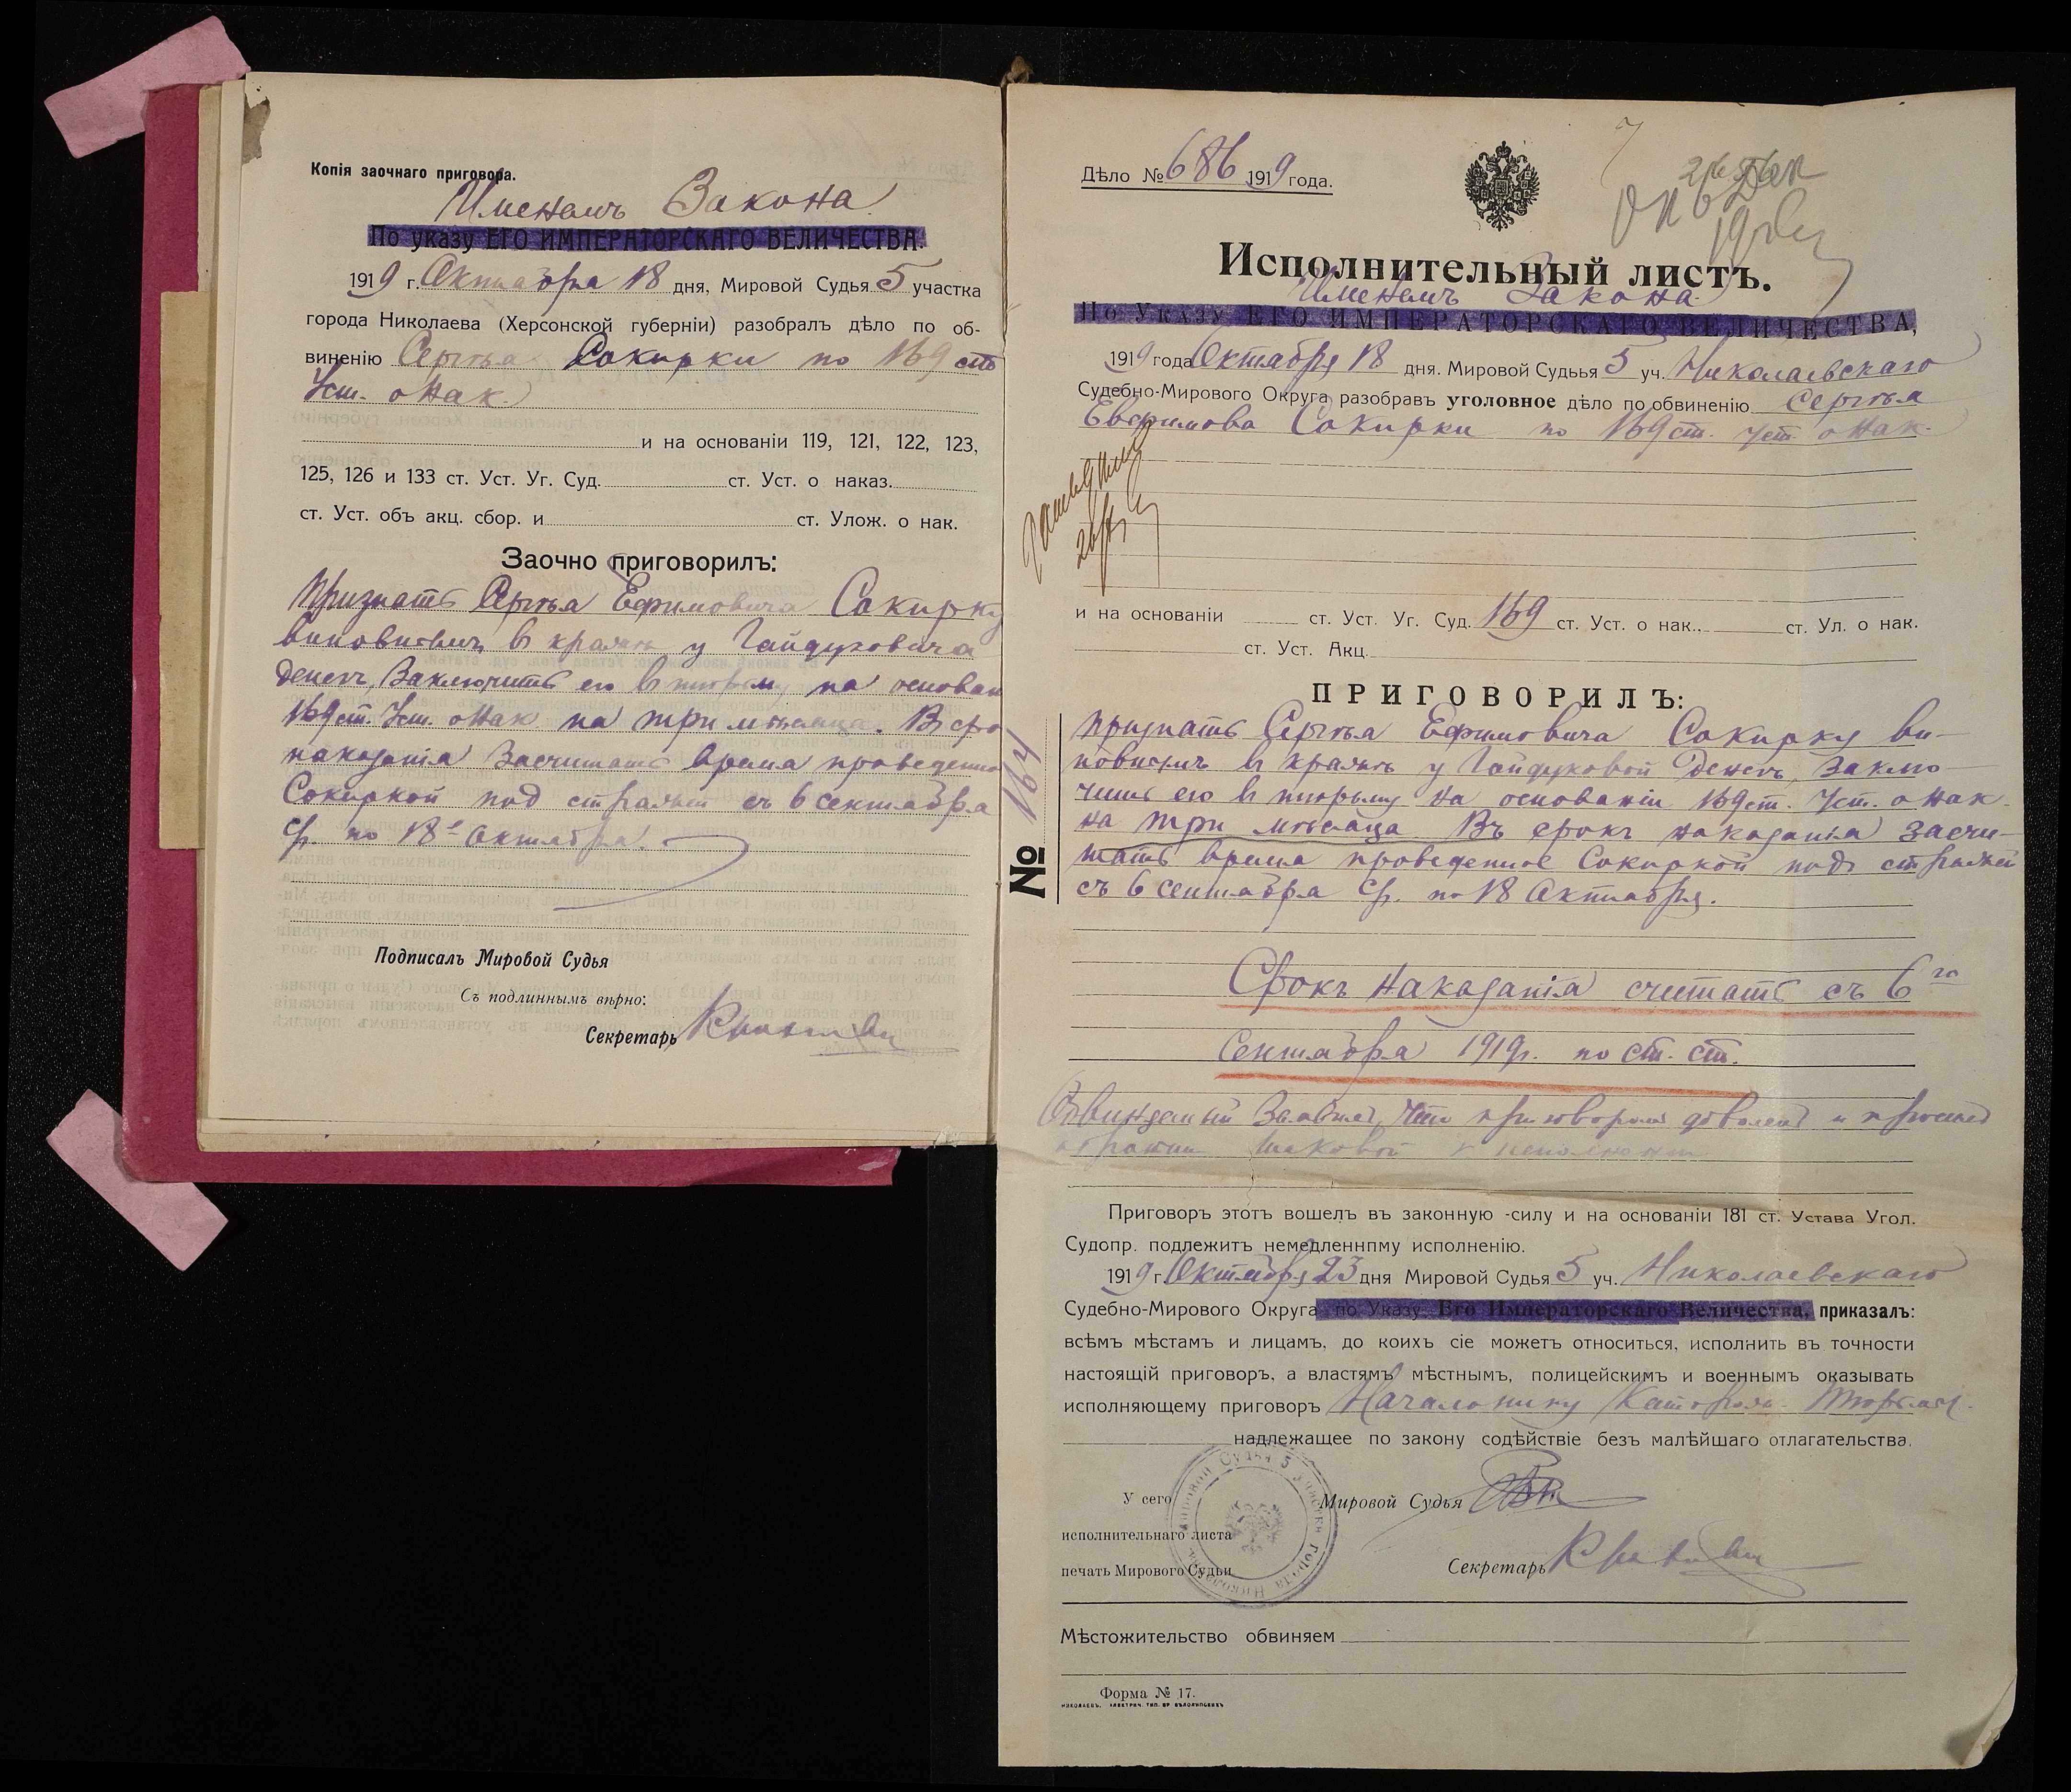 Копія заочнаго приговора.
Именемъ Закона
По указу ЕГО ИМПЕРАТОРСКАГО ВЕЛИЧЕСТВА.
1919 г. Октября 18 дня, Мировой Судья 5 участка
города Николаева (Херсонской губерніи) разобралъ дѣло по об-
виненію Сергѣя Сокирки по 169 ст
Уст. о Нак.
и на основаніи 119, 121, 122, 123,
125, 126 и 133 ст. Уст. Уг. Суд. ст. Уст. о наказ.
ст. Уст. объ акц. сбор. и ст. Улож. о нак.
Заочно приговорилъ:
Признать Сергѣя Ефимовича Сокирку
виновнымъ въ кражѣ у Гайдуковича
денегъ, Заключить его въ тюрьму на основан
169 ст. Уст. о Нак на три мѣсяца. Въ сро
наказанія Засчитать время проведенно
Сокиркой под стражей съ 6 сентября
с/г. по 18е Октября.
Подписалъ Мировой Судья
Съ подлиннымъ вѣрно:
Секретарь
Дѣло № 686 1919 года.
Исполнительный листъ.
Именемъ Закона
По Указу ЕГО ИМПЕРАТОРСКАГО ВЕЛИЧЕСТВА,
1919 года Октября 18 дня. Мировой Судьья 5 уч. Николаевскаго
Судебно-Мирового Округа разобравъ уголовное дѣло по обвиненію Сергѣя
Евфимова Сокирки по 169 ст. Уст. о Нак.
и на основаніи ст. Уст. Уг. Суд. 169 ст. Уст. о нак., ст. Ул. о нак.
ст. Уст. Акц.
ПРИГОВОРИЛЪ:
Признать Сергѣя Ефимовича Сокирку ви-
новнымъ въ кражѣ у Гайдуковой денегъ, Заклю
чить его въ тюрьму на основаніи 169 ст. Уст. о Нак.
на три мѣсяца Въ срокъ наказанія засчи-
тать время проведенное Сокиркой подъ стражей
съ 6 сентября с/г. по 18 Октября.
№ 164
Срокъ Наказанія считать съ 6го
Сентября 1919г. по ст. ст.
Обвиняемый Заявилъ, что приговоромъ доволенъ и проситъ
Приговоръ этотъ вошелъ въ законную -силу и на основаніи 181 ст. Устава Угол.
Судопр. подлежитъ немедленнпму исполненію.
1919 г. Октября 23 дня Мировой Судья 5 уч. Николаевскаго
Судебно-Мирового Округа по Указу Его Императорскаго Величества, приказалъ:
всѣмъ мѣстамъ и лицамъ, до коихъ сіе можетъ относиться, исполнить въ точности
настоящій приговоръ, а властямъ мѣстнымъ, полицейскимъ и военнымъ оказывать
исполняющему приговоръ Начальнику Каторжн. Тюрьмы.
надлежащее по закону содѣйствіе безъ малѣйшаго отлагательства.
У сего
исполнительнаго листа
печать Мирового Судьи
Мировой Судья 5 участка города Николаева
Мировой Судья
Секретарь
Мѣстожительство обвиняем
Форма № 17.